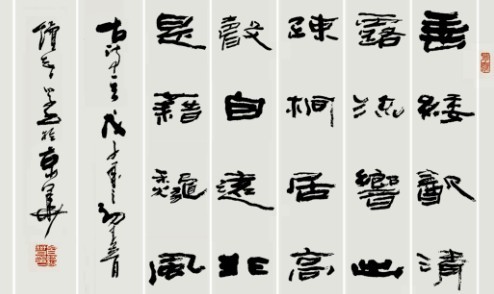 垂緌飲清
露流響出
疎桐居高
聲自遠非
是藉龝風
古诗一首戊子年初
於京華